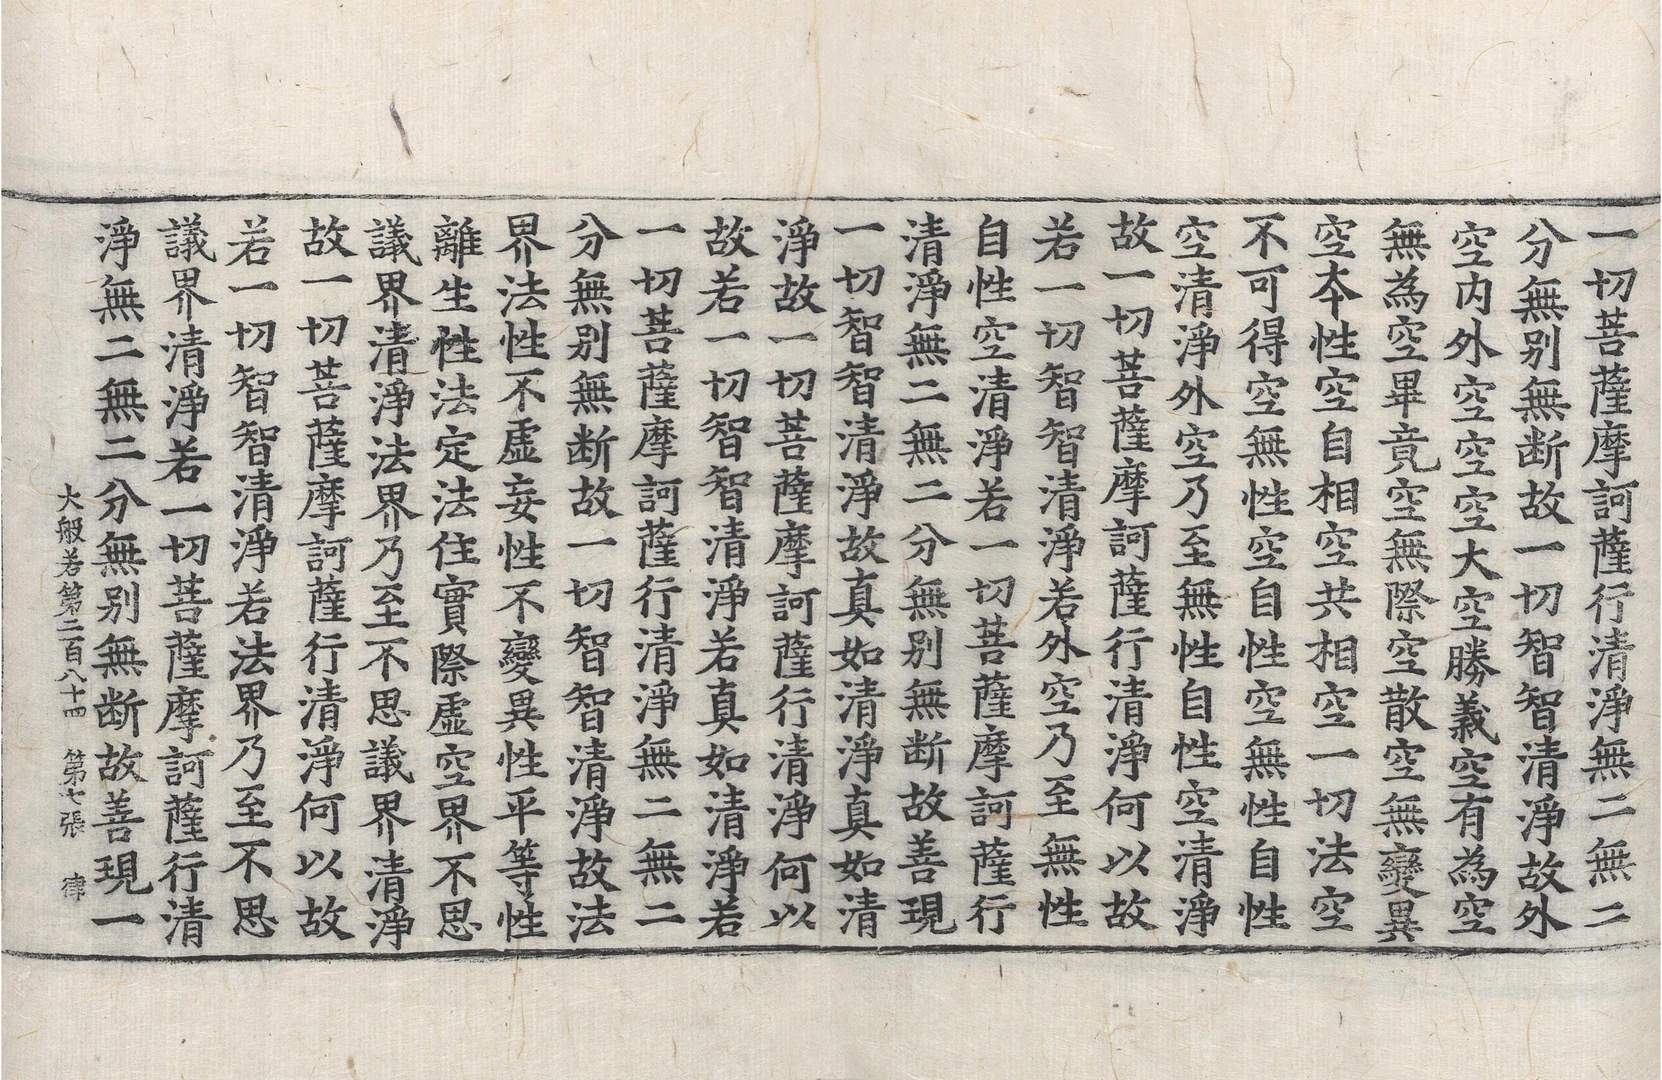 一切菩薩摩訶薩行清淨無二無二
分無別無斷故一切智智清淨故外
空内外空空空大空勝義空有為空
無為空畢竟空無際空散空無變異
空本性空自相空共相空一切法空
不可得空無性空自性空無性自性
空清淨外空乃至無性自性空清淨
故一切菩薩摩訶薩行清淨何以故
若一切智智清淨若外空乃至無性
自性空清淨若一切菩薩摩訶薩行
清淨無二無二分無別無斷故善現
一切智智清淨故真如清淨真如清
淨故一切菩薩摩訶薩行清淨何以
故若一切智智清淨若真如清淨若
一切菩薩摩訶薩行清淨無二無二
分無別無斷故一切智智清淨故法
界法性不虛妄性不變異性平等性
離生性法定法住實際虛空界不思
議界清淨法界乃至不思議界清淨
故一切菩薩摩訶薩行清淨何以故
若一切智智清淨若法界乃至不思
議界清淨若一切菩薩摩訶薩行清
淨無二無二分無別無斷故善現一
大般若第二百八十四 第七張 律